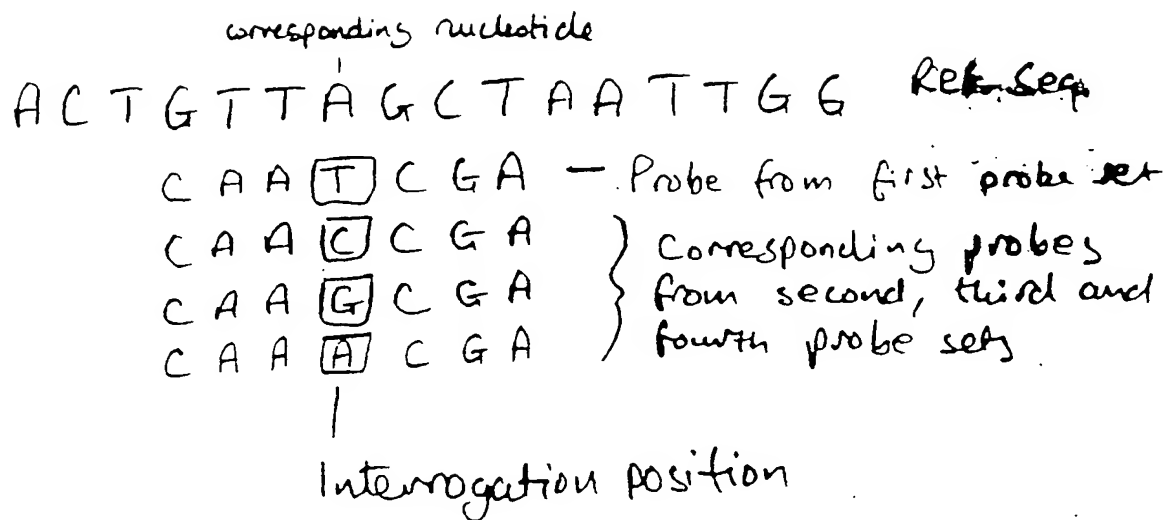 corresponding nucleotide
A C T G T T A G C T A A T T G G Ref. Seq.
C A A T C G A — Probe from first probe set
C A A C C G A } Corresponding probes
C A A G C G A from second, third and
C A A A C G A fourth probe sets.
Interrogation position